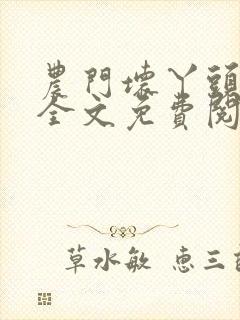 農門壞丫頭
全文免費閱
草水敏 惠三